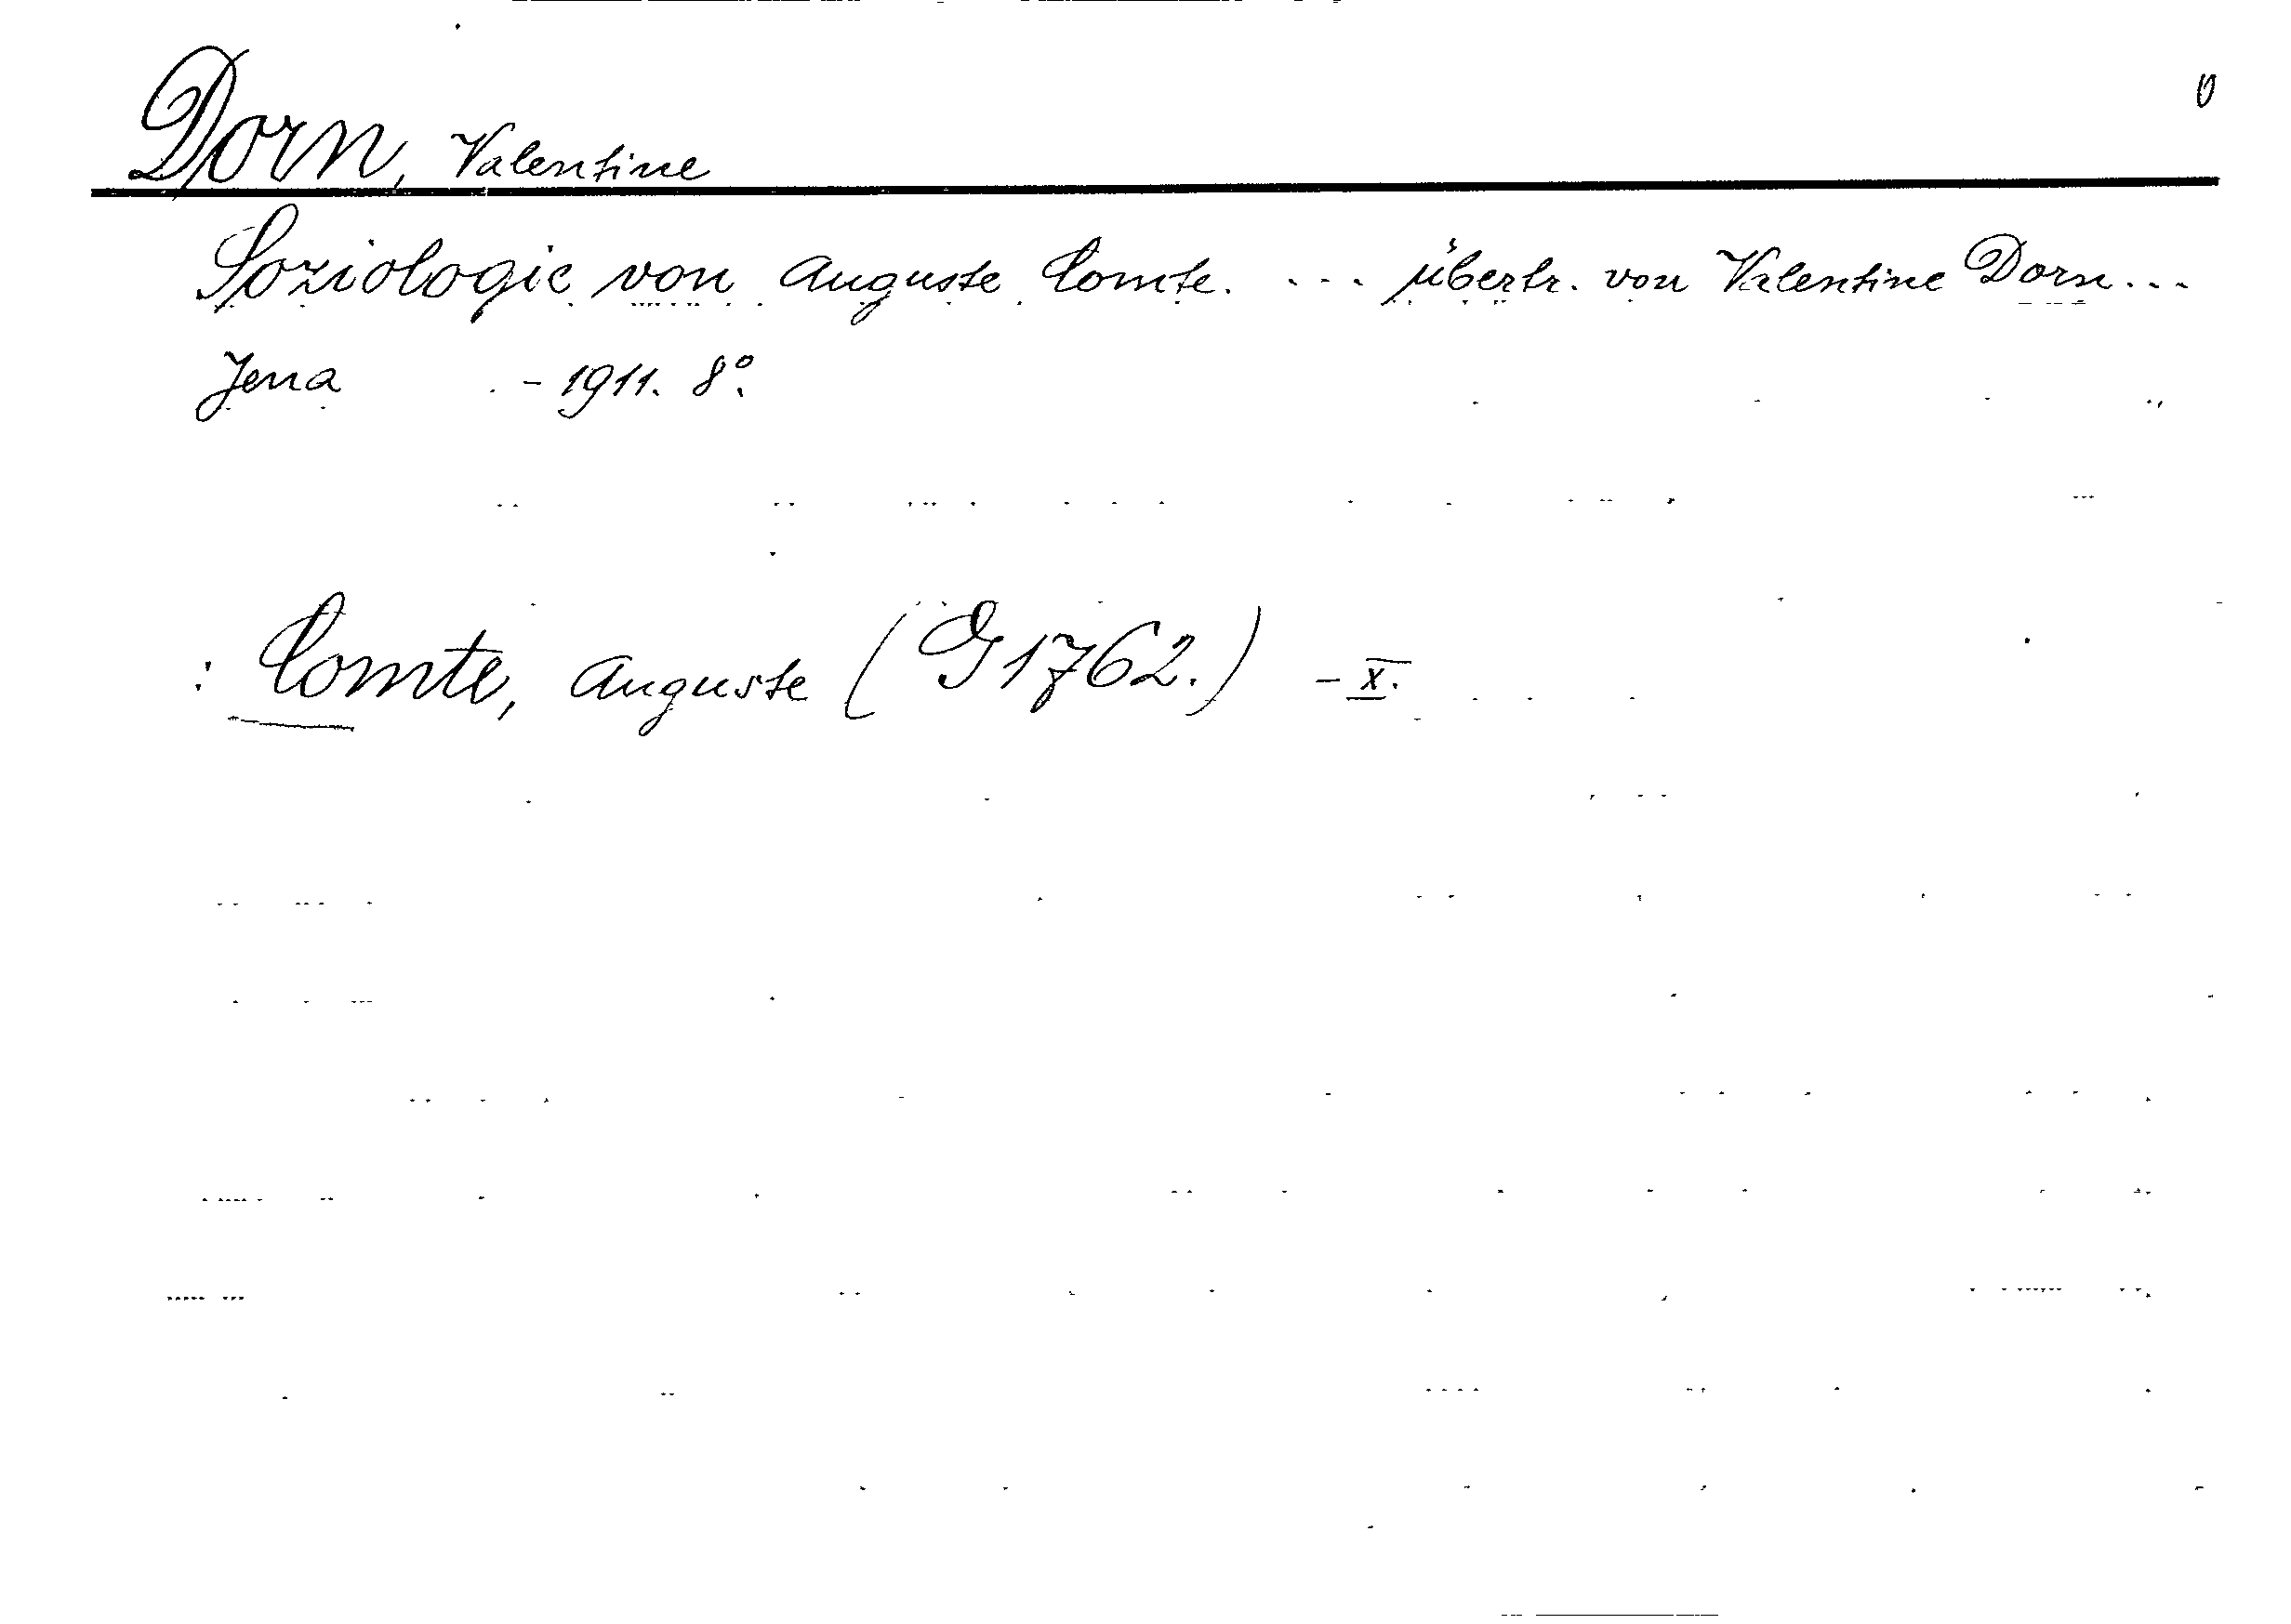 Dorn, Valentine
Soziologie von Auguste Comte. ... übertr. von Valentine Dorn...
Jena - 1911. 8°.
: Comte, Auguste (G 1762.) - X.